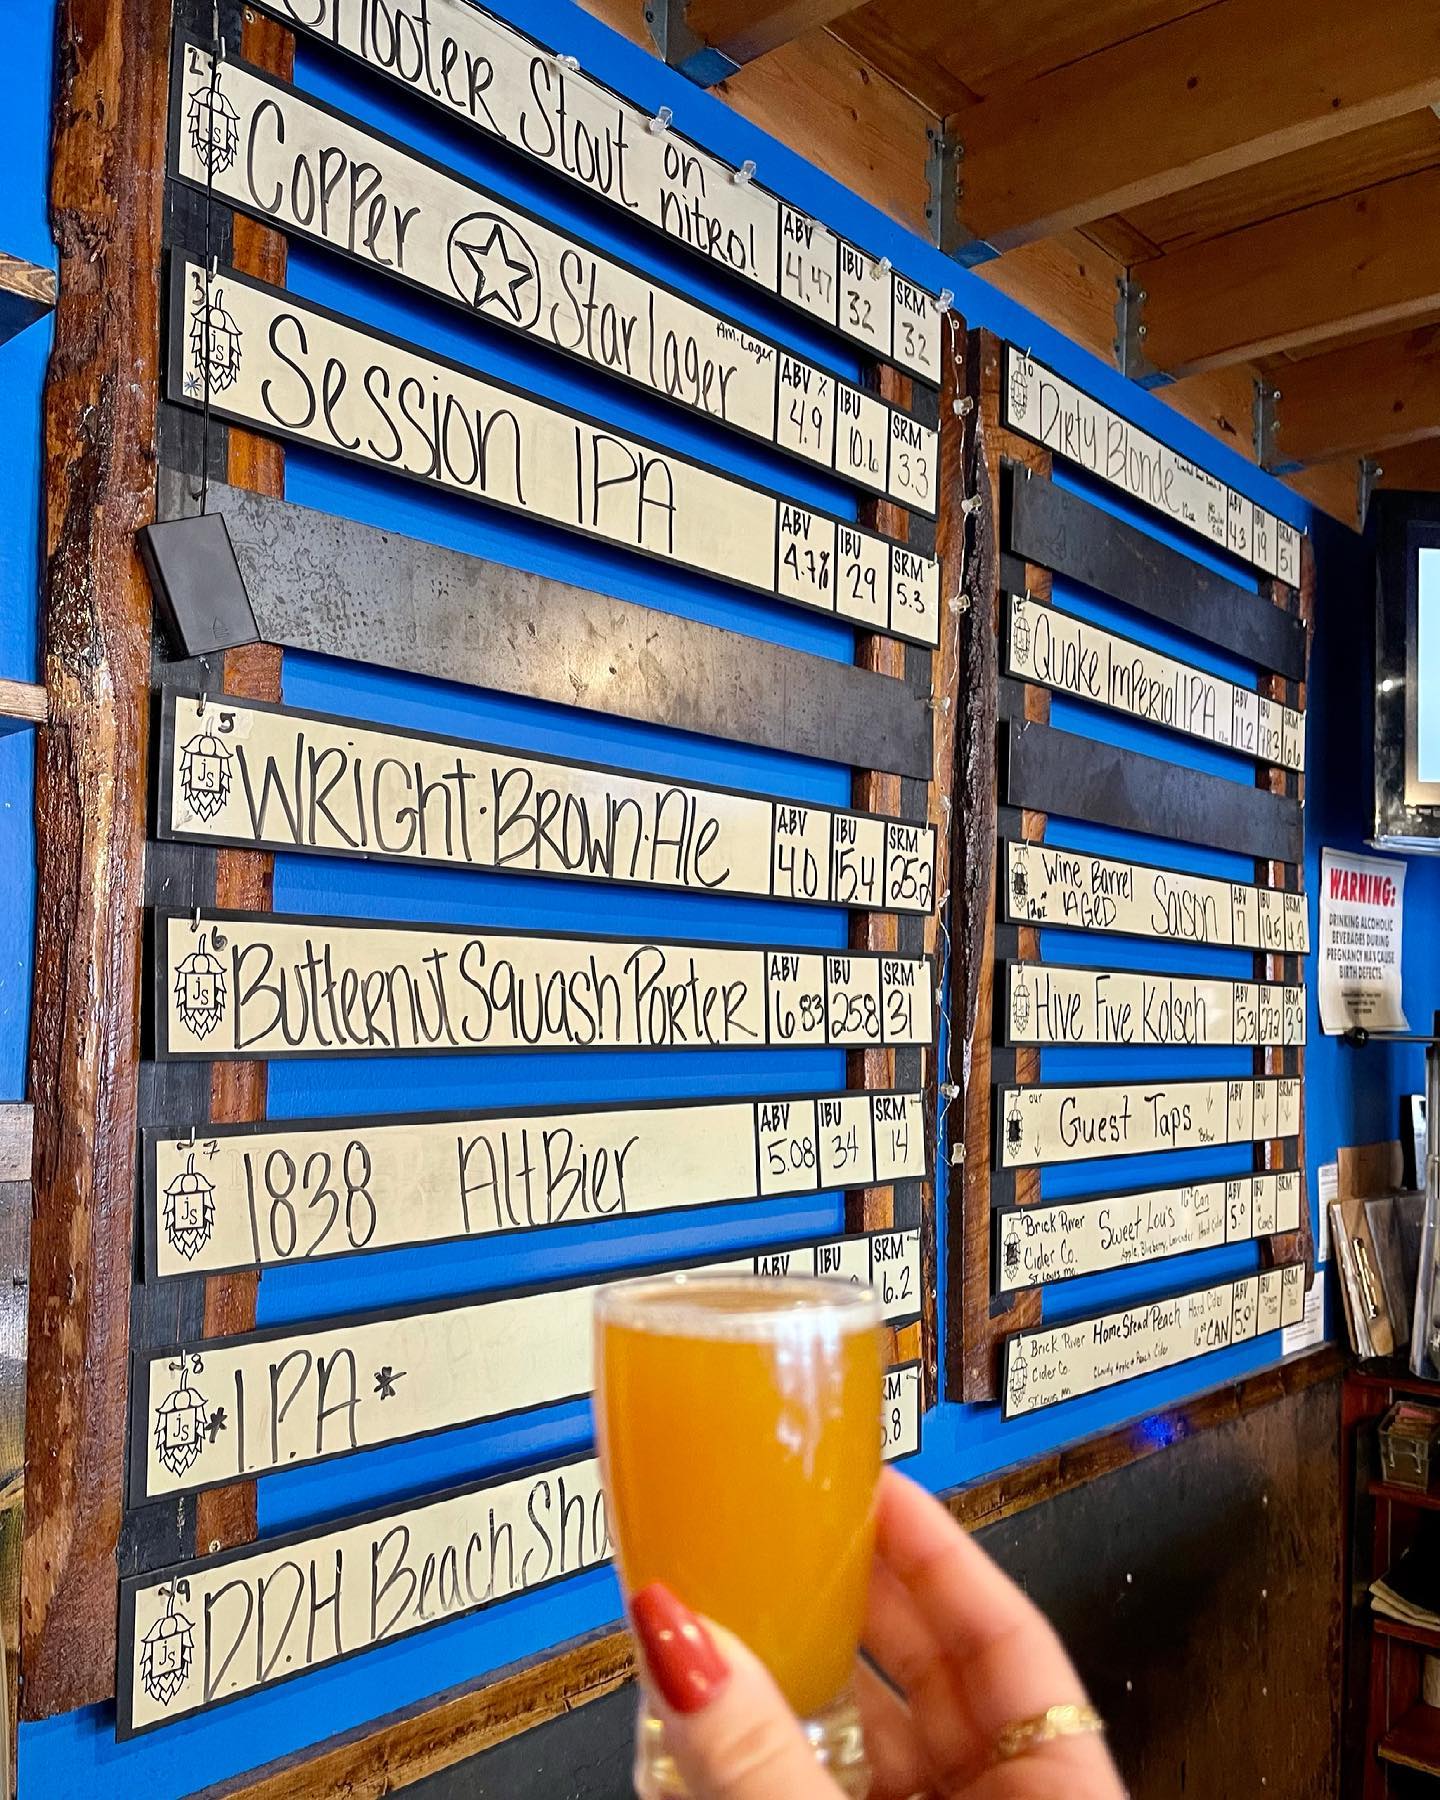 Shooter Stout on nitro!
ABV 4.47 IBU 32 SRM 32
2
js
Copper Star lager
Am. Lager
ABV % 4.9 IBU 10.6 SRM 3.3
3
js
Session IPA
ABV 4.7% IBU 29 SRM 5.3
5
js
Wright·Brown·Ale
ABV 4.0 IBU 15.4 SRM 25.2
6
js
Butternut Squash Porter
ABV 6.83 IBU 25.8 SRM 31
7
js
1838 AltBier
ABV 5.08 IBU 34 SRM 14
8
js
*I.P.A*
ABV IBU SRM 6.2
9
js
DDH Beach Sha
.8
10
Dirty Blonde
12oz
ABV 4.3 IBU 19 SRM 5.1
12
Quake Imperial IPA
ABV 11.2 IBU 78.3 SRM 6.6
Wine Barrel AGED Saison
12oz
ABV 7 IBU 19.5 SRM 4.2
Hive Five Kolsch
5.3 27.2 3.9
our Guest Taps Below
ABV IBU SRM
Brick River Cider Co. St. Louis, Mo.
Sweet Lou's 16oz Can
Apple, Blueberry, Lavender Hard Cider
ABV 5.0 IBU SRM
Brick River Cider Co. St. Louis, Mo.
HomeStead Peach Hard Cider
16oz CAN
Cloudy Apple & Peach Cider
ABV 5.0 IBU
WARNING:
DRINKING ALCOHOLIC
BEVERAGES DURING
PREGNANCY MAY CAUSE
BIRTH DEFECTS.